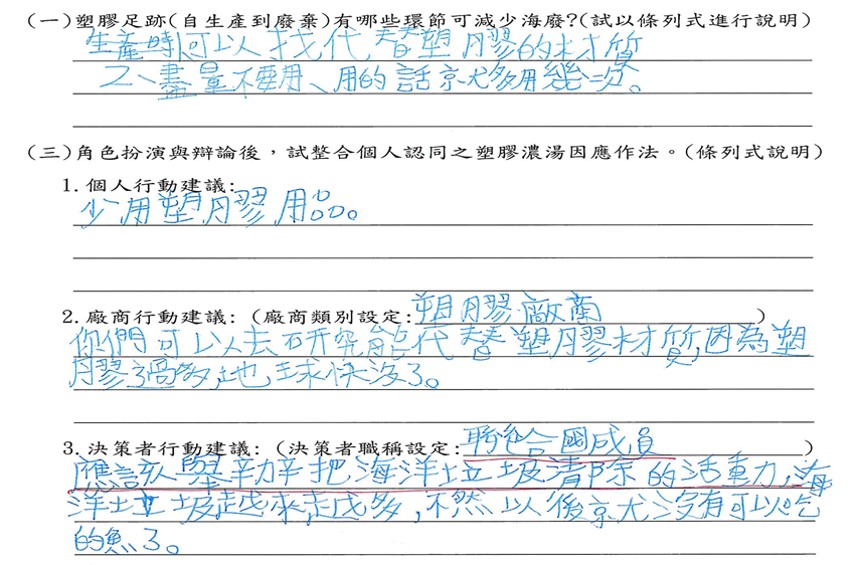 (一)塑膠足跡(自生產到廢棄)有哪些環節可減少海廢?(試以條列式進行說明)
生產時可以找代替塑膠的材質
2、盡量不要用、用的話就多用幾次。
(三)角色扮演與辯論後，試整合個人認同之塑膠濃湯因應作法。(條列式說明)
1.個人行動建議:
少用塑膠用品。
2.廠商行動建議:(廠商類別設定:塑膠廠商)
你們可以去研究能代替塑膠材質,因為塑
膠過多,地球快沒了。
3.決策者行動建議:(決策者職稱設定:聯合國成員)
應該舉辦把海洋垃圾清除的活動,海
洋垃圾越來越多,不然以後就沒有可以吃
的魚了。